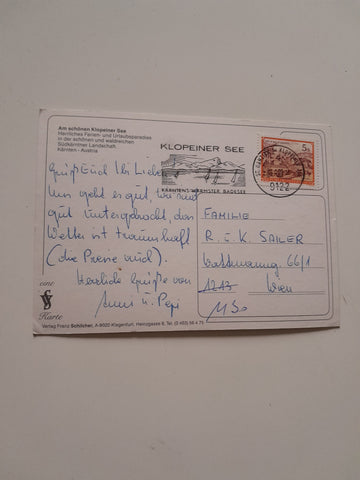 Am schönen Klopeiner See
Herrliches Ferien- und Urlaubsparadies
in der schönen und waldreichen
Südkärntner Landschaft
Kärnten - Austria
KLOPEINER SEE
KÄRNTENS WÄRMSTER BADESEE
9122
5 S
Grüß Euch Ihr Lieben
Uns geht es gut, wir sind
gut untergebracht, das
Wetter ist traumhaft
(die Preise auch).
Herzliche Grüße von
Anni u. Pepi
FAMILIE
R. u. K. SAILER
66/1
Wien
eine
Karte
Verlag Franz Schilcher, A-9020 Klagenfurt, Heinzgasse 6, Tel. (0 463) 56 4 71